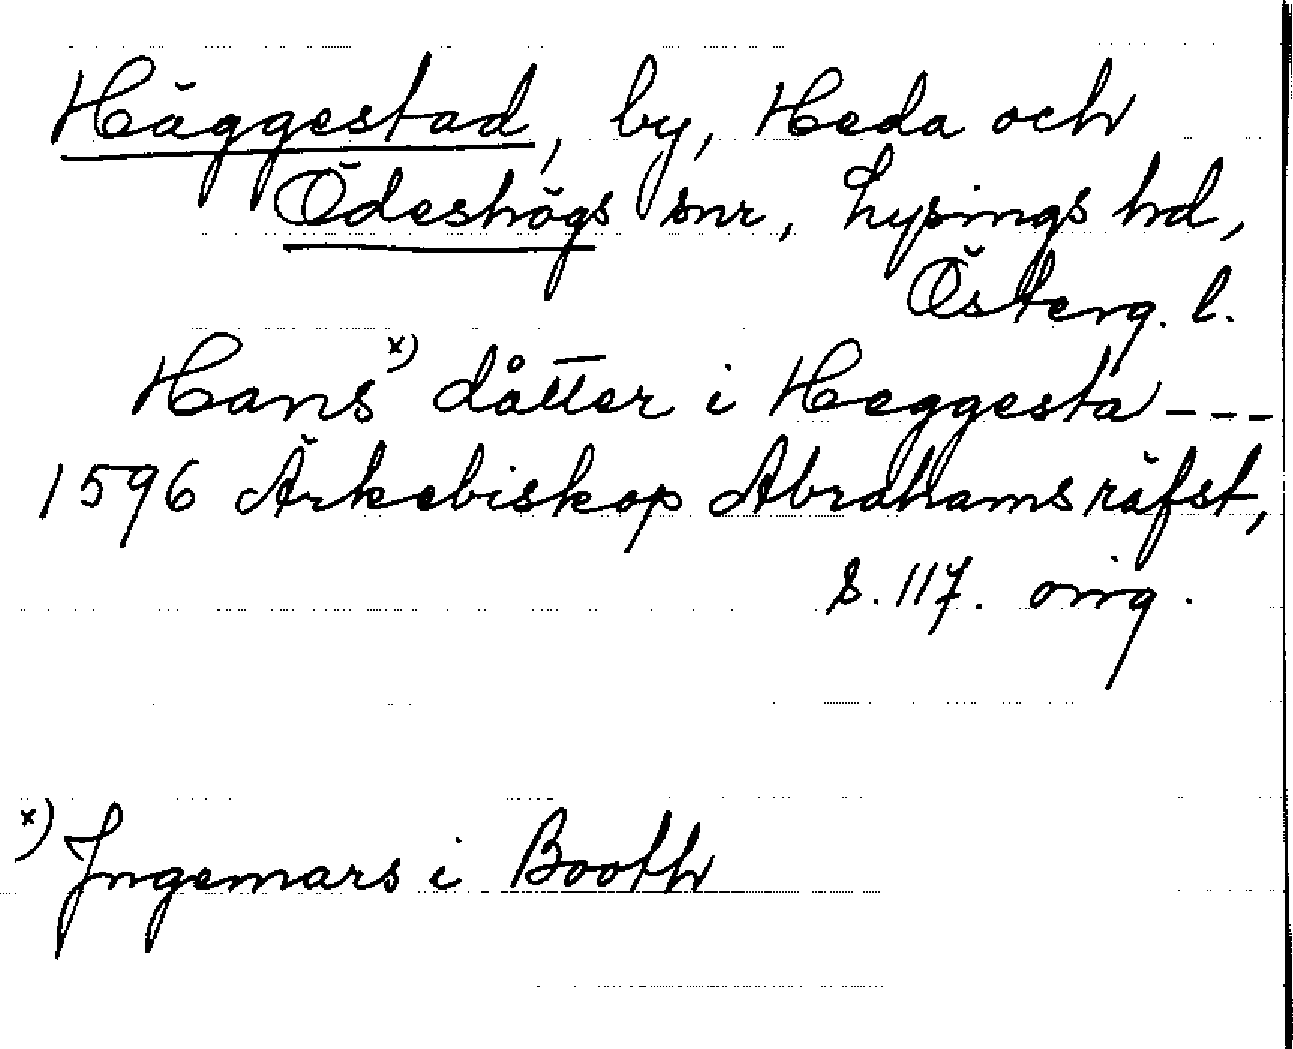 Häggestad, by, Heda och
Ödeshögs snr, Lysings hd,
Österg. l.
Hans x) dåtter i Heggesta ---
1596 Ärkebiskop Abrahams räfst,
s. 117. orig.
x) Ingemars i Booth